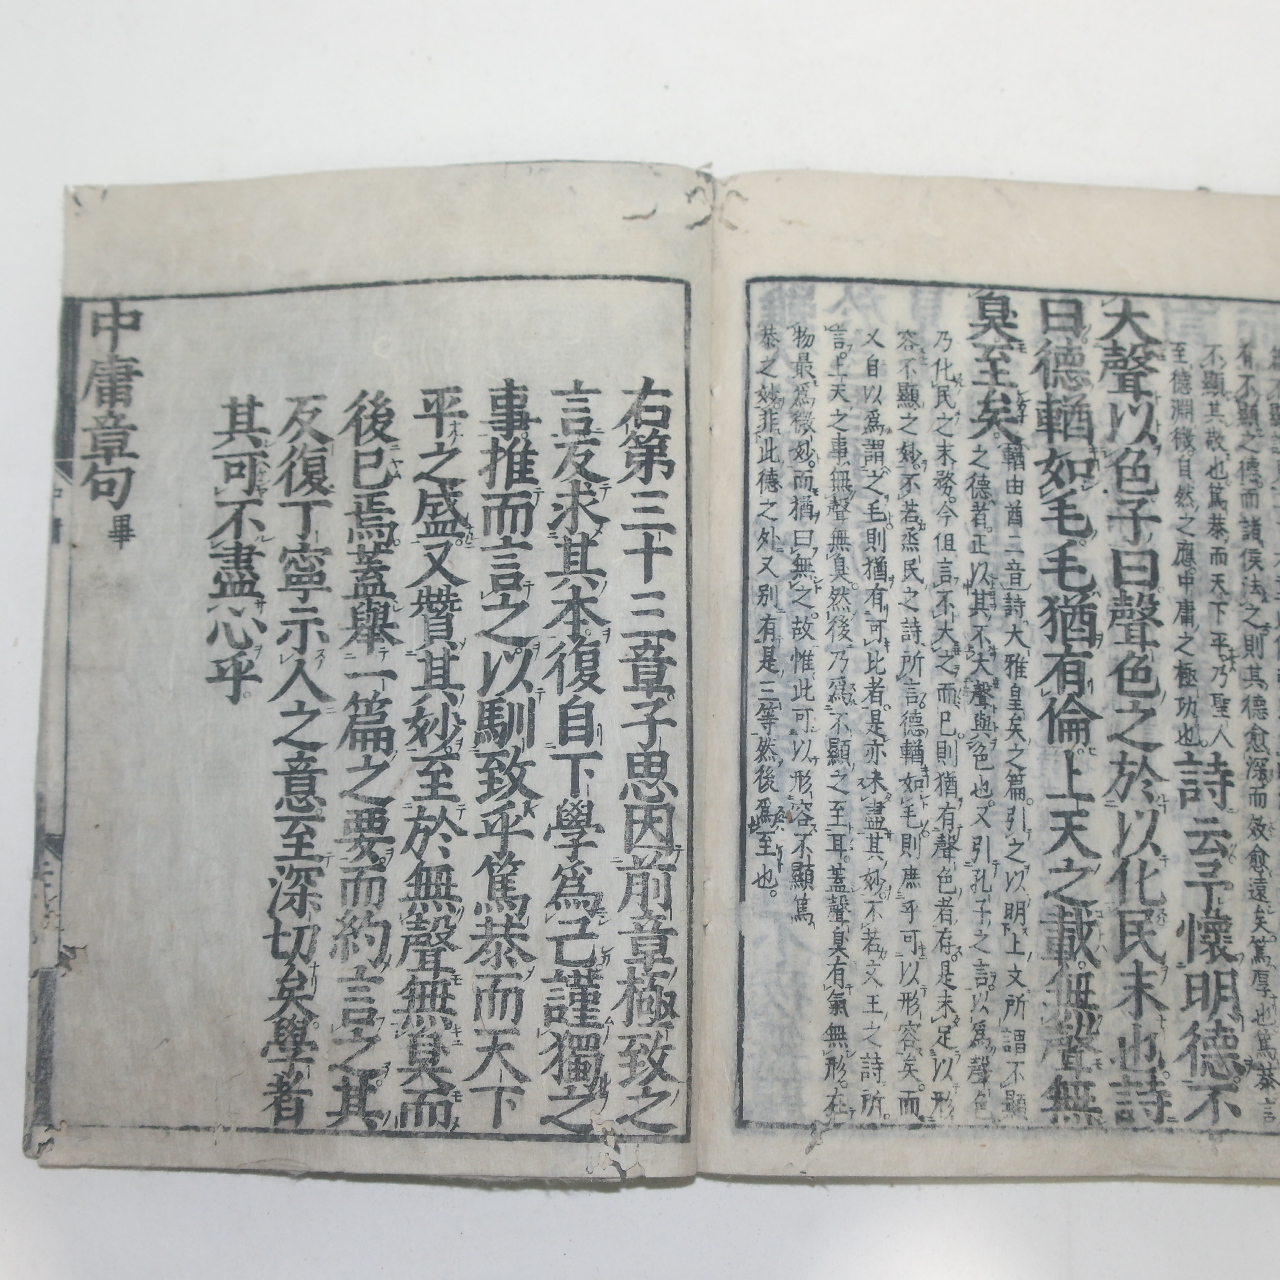 有不顯之德而諸侯法之則其德愈深而效愈遠矣篤厚也篤恭言
不顯其敬也篤恭而天下平乃聖人
至德淵微自然之應中庸之極功也
詩云予懷明德不
大聲以色子曰聲色之於以化民末也詩
曰德輶如毛毛猶有倫上天之載無聲無
臭至矣
輶由酋二音詩大雅皇矣之篇引之以明上文所謂不顯
之德者正以其不大聲與色也又引孔子之言以爲聲色
乃化民之末務今但言不大之而已則猶有聲色者存是未足以形
容不顯之妙不若烝民之詩所言德輶如毛則庶乎可以形容矣而
又自以爲謂之毛則猶有可比者是亦未盡其妙不若文王之詩所
言上天之事無聲無臭然後乃爲不顯之至耳蓋聲臭有氣無形在
物最爲微妙而猶曰無之故惟此可以形容不顯篤
恭之妙非此德之外又別有是三等然後爲至也
右第三十三章子思因前章極致之
言反求其本復自下學爲己謹獨之
事推而言之以馴致乎篤恭而天下
平之盛又贊其妙至於無聲無臭而
後已焉蓋舉一篇之要而約言之其
反復丁寧示人之意至深切矣學者
其可不盡心乎
中庸章句畢